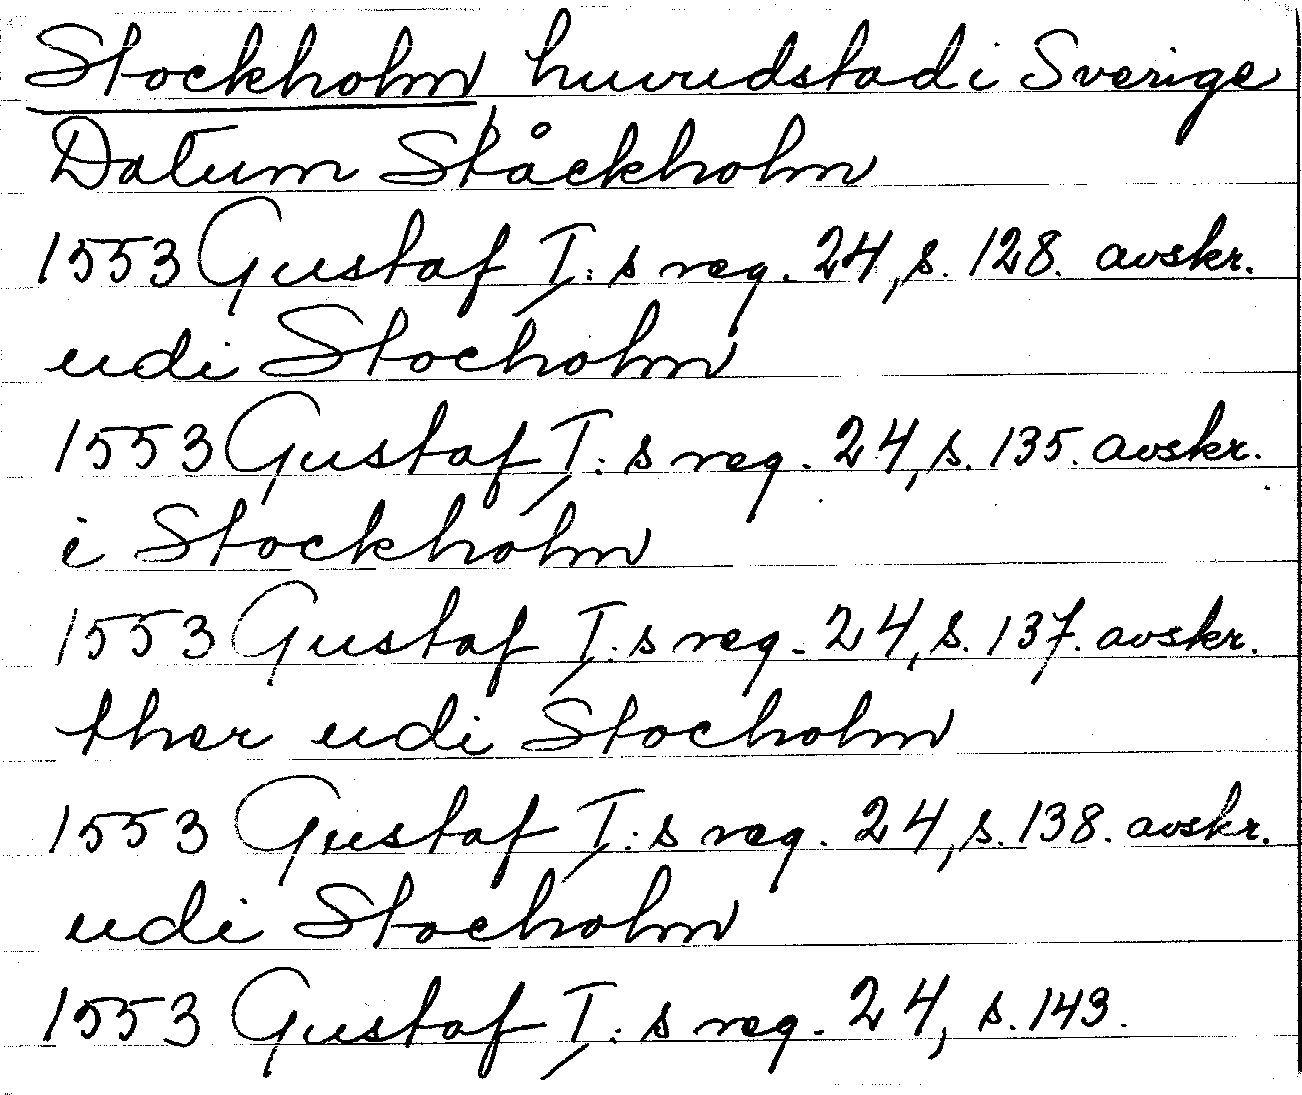 Stockholm, huvudstad i Sverige
Datum Ståckholm
1553 Gustaf I:s reg. 24, s. 128. avskr.
udi Stocholm
1553 Gustaf I:s reg. 24, s. 135. avskr.
i Stockholm
1553 Gustaf I:s reg. 24, s. 137. avskr.
ther udi Stocholm
1553 Gustaf I:s reg. 24, s. 138. avskr.
udi Stocholm
1553 Gustaf I:s reg. 24, s. 143.